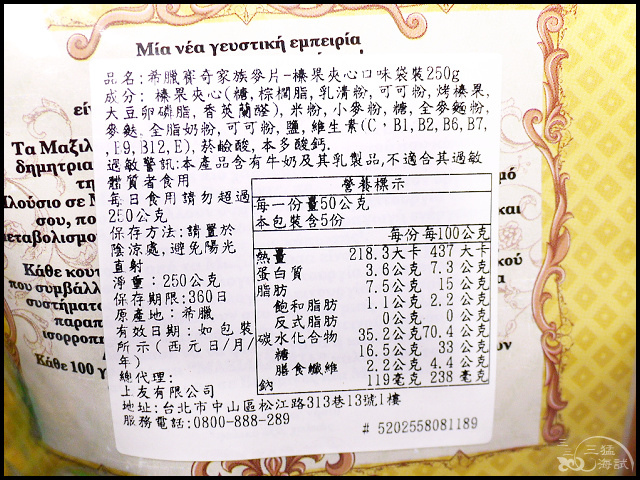 Μία νέα γευστική εμπειρία
είν
Τα Μαξιλ
δημητρια
τη
Πλούσιο σε Μ
σου, πο
μεταβολισμο
Κάθε κουτ
που συμβάλλ
συστήματο
παραπ
ισορροπη
Κάθε 100 γ
μό
και
κού
ων
品名:希臘寶奇家族麥片-榛果夾心口味袋裝250g
成分: 榛果夾心(糖,棕櫚脂,乳清粉,可可粉,烤榛果,
大豆卵磷脂,香英蘭醛),米粉,小麥粉,糖,全麥麵粉,
麥麩,全脂奶粉,可可粉,鹽,維生素(C,B1,B2,B6,B7,
,E9,B12,E),菸鹼酸,本多酸鈣.
過敏警訊:本產品含有牛奶及其乳製品,不適合其過敏
體質者食用
每日食用請勿超過
250公克
保存方法:請置於
陰涼處,避免陽光
直射
淨重:250公克
保存期限:360日
原產地:希臘
有效日期:如包裝
所示(西元日/月/
年)
總代理:
上友有限公司
地址:台北市中山區松江路313巷13號1樓
服務電話:0800-888-289
營養標示
每一份量50公克
本包裝含5份
每份 每100公克
熱量 218.3大卡 437 大卡
蛋白質 3.6公克 7.3 公克
脂肪 7.5公克 15 公克
飽和脂肪 1.1公克 2.2 公克
反式脂肪 0公克 0 公克
碳水化合物 35.2公克 70.4公克
糖 16.5公克 33 公克
膳食纖維 2.2公克 4.4 公克
鈉 119毫克 238 毫克
# 5202558081189
三猛
海試